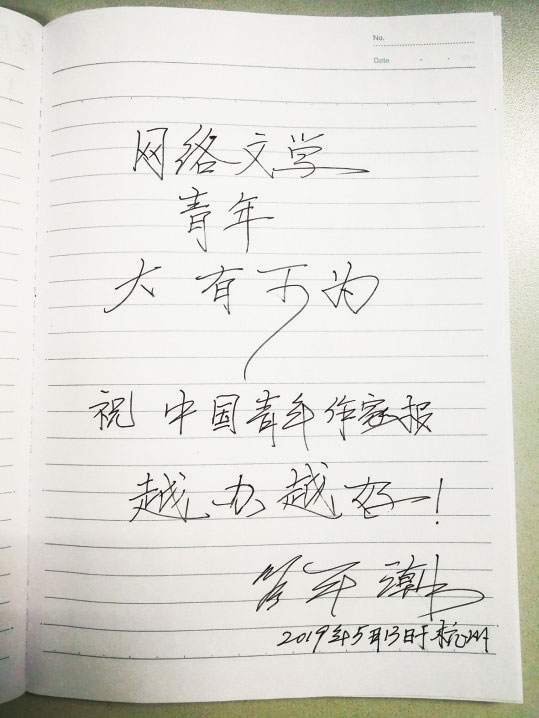 No.
Date
网络文学
青年
大有可为
祝中国青年作家报
越办越好！
管平潮
2019年5月13日于杭州